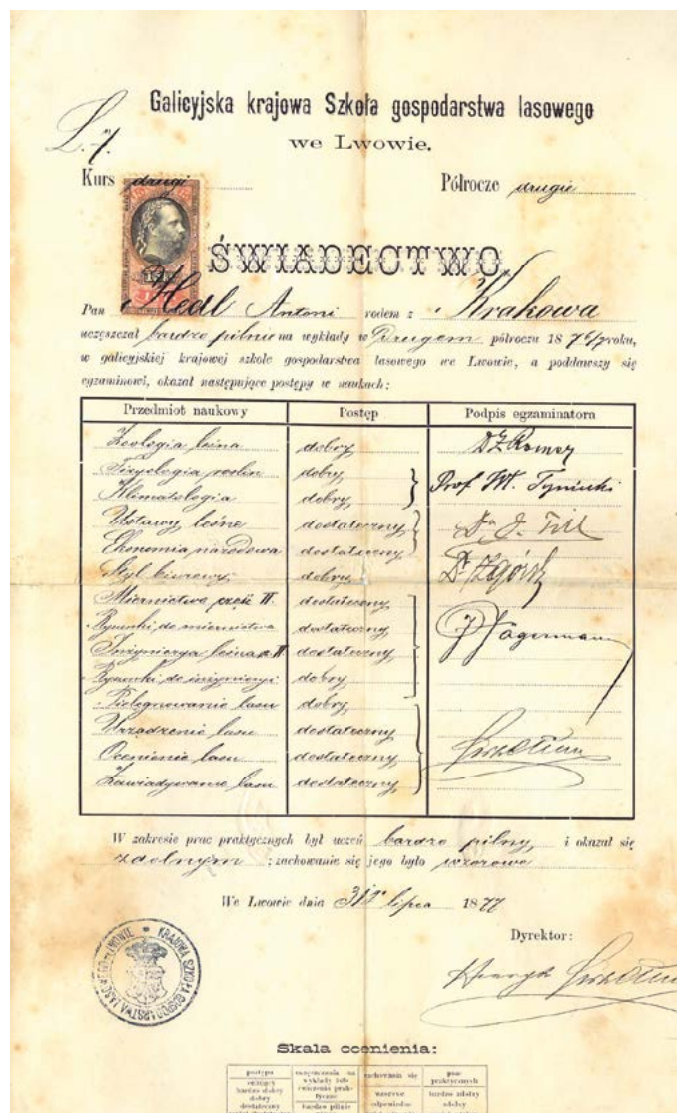 Galicyjska krajowa Szkoła gospodarstwa lasowego
we Lwowie.
L. 7.
Kurs drugi Półrocze drugie
ŚWIADECTWO.
Pan Hedl Antoni rodem z Krakowa
uczęszczał bardzo pilnie na wykłady w Drugem półroczu 187 6/7 roku,
w galicyjskiej krajowej szkole gospodarstwa lasowego we Lwowie, a poddawszy się
egzaminowi, okazał następujące postępy w naukach:
Przedmiot naukowy Postęp Podpis egzaminatora
Zoologia leśna dobry Dr Z Romer
Fizyologia roślin dobry
Klimatologia dobry Prof. Wł. Tyniecki
Ustawy leśne dostateczny
Ekonomia narodowa dostateczny
Styl biurowy dobry
Miernictwo część II. dostateczny
Rysunki do miernictwa dostateczny
Inżynierya leśna II dostateczny
Rysunki do inżynieryi dobry
Pielęgnowanie lasu dobry
Urządzenie lasu dostateczny
Ocenienie lasu dostateczny
Zawiadywanie lasu dostateczny
W zakresie prac praktycznych był uczeń bardzo pilny, i okazał się
zdolnym; zachowanie się jego było wzorowe
We Lwowie dnia 31go lipca 1877
Dyrektor:
Henryk
KRAJOWA SZKOŁA GOSPODARSTWA LASOWEGO WE LWOWIE
Skala ocenienia:
postępu uczęszczania na wykłady lub ćwiczenia praktyczne zachowania się prac praktycznych
celujący
bardzo dobry
dobry
dostateczny
bardzo pilnie
wzorowe
odpowiednie
bardzo zdolny
zdolny